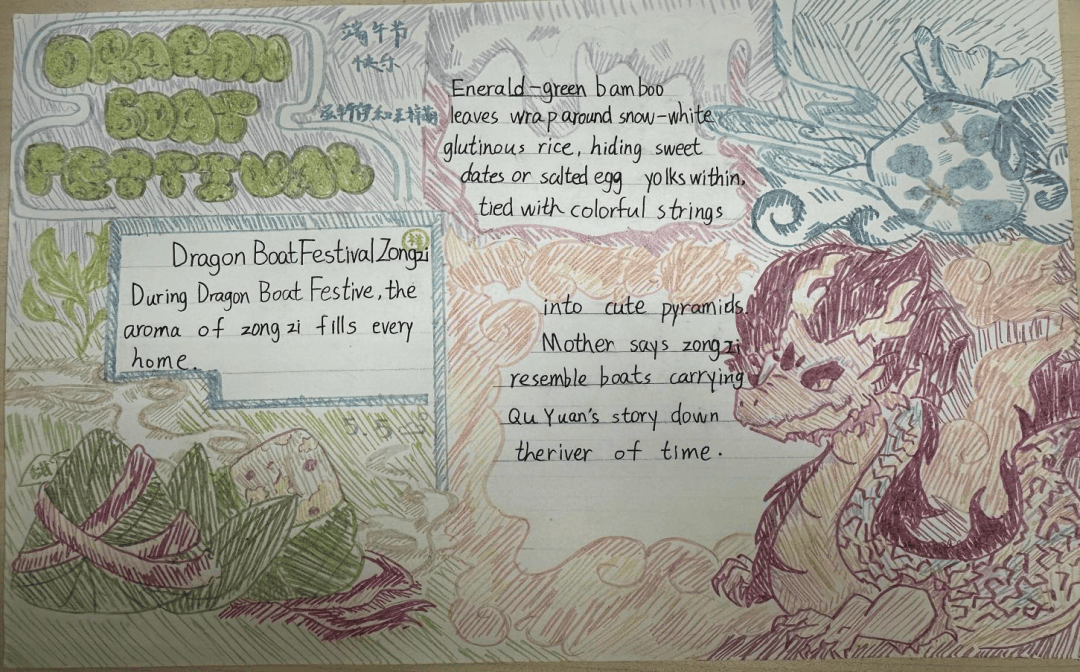 DRAGON
BOAT
FETTIVAL
端午节
快乐
Dragon Boat Festival Zongzi
During Dragon Boat Festive, the
aroma of zong zi fills every
home.
5.5
Enerald-green bamboo
leaves wrap around snow-white
glutinous rice, hiding sweet
dates or salted egg yolks within,
tied with colorful strings
into cute pyramids.
Mother says zongzi
resemble boats carrying
Qu Yuan's story down
theriver of time.